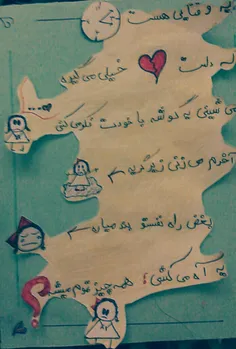 یه وقتایی هست
که دلت خیلی می گیره
می شینی یه گوشه با خودت فکر می کنی
آخرم می زنی زیر گریه
بغض راه نفستو بند میاره
یه آه می کشی؛ همه چیز تموم میشه
؟